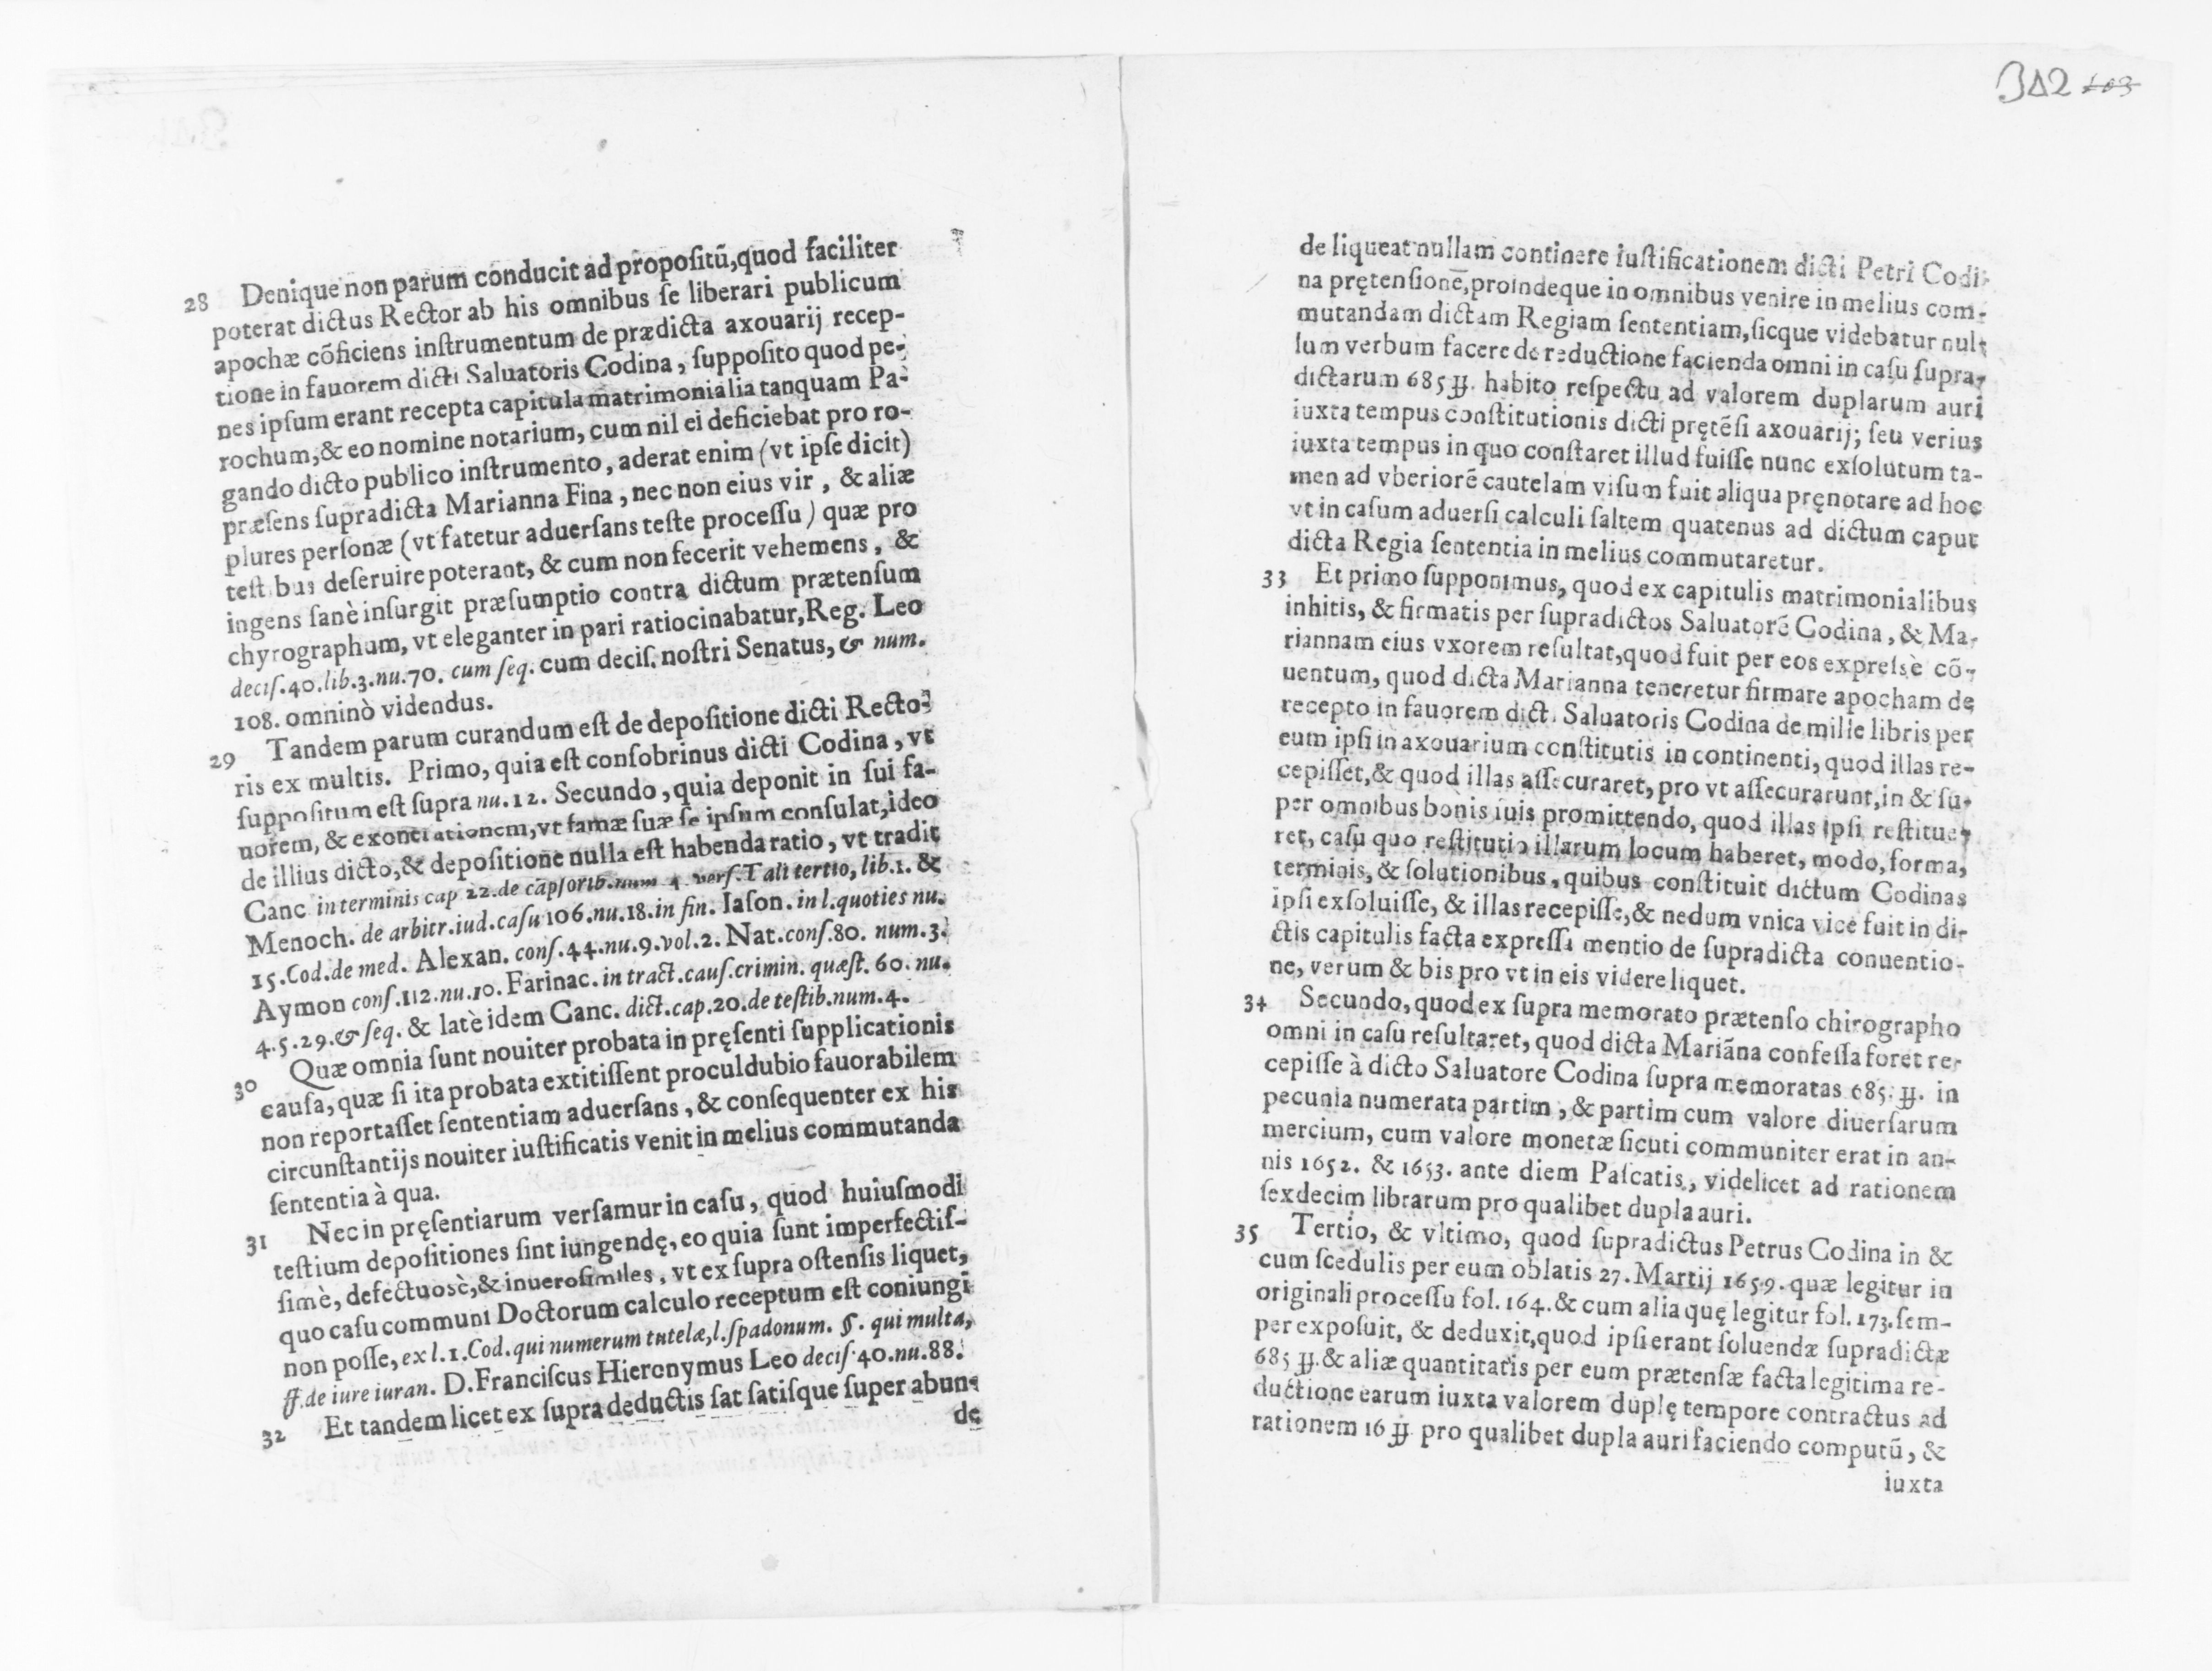 28 Denique non parum conducit ad propoſitũ,quod faciliter
poterat dictus Rector ab his omnibus ſe liberari publicum
apochæ cõficiens inſtrumentum de prædicta axouarij recep-
tione in fauorem dicti Saluatoris Codina, ſuppoſito quod pe-
nes ipſum erant recepta capitula matrimonialia tanquam Pa-
rochum,& eo nomine notarium, cum nil ei deficiebat pro ro-
gando dicto publico inſtrumento, aderat enim (vt ipſe dicit)
præſens ſupradicta Marianna Fina, nec non eius vir, & aliæ
plures perſonæ (vt fatetur aduerſans teſte proceſſu) quæ pro
teſtibus deſeruire poterant, & cum non fecerit vehemens, &
ingens ſanè inſurgit præſumptio contra dictum prætenſum
chyrographum, vt eleganter in pari ratiocinabatur,Reg. Leo
deciſ.40.lib.3.nu.70. cum ſeq. cum deciſ. noſtri Senatus, & num.
108. omninò videndus.
29 Tandem parum curandum eſt de depoſitione dicti Recto-
ris ex multis. Primo, quia eſt conſobrinus dicti Codina, vt
ſuppoſitum eſt ſupra nu.12. Secundo, quia deponit in ſui fa-
uorem, & exonerationem, vt famæ ſuæ ſe ipſum conſulat,ideo
de illius dicto,& depoſitione nulla eſt habenda ratio, vt tradit
Canc in terminis cap 22.de capſorib.num 4. verſ.Tali tertio, lib.1. &
Menoch. de arbitr.iud.caſu 106.nu.18.in fin. Iaſon. in l.quoties nu.
15.Cod.de med. Alexan. conſ.44.nu.9.vol.2. Nat.conſ.80. num.3.
Aymon conſ.112.nu.10. Farinac. in tract.cauſ.crimin. quæſt. 60. nu.
4.5.29.& ſeq. & latè idem Canc. dict.cap.20.de teſtib.num.4.
30 Quæ omnia ſunt nouiter probata in pręſenti ſupplicationis
cauſa, quæ ſi ita probata extitiſſent proculdubio fauorabilem
non reportaſſet ſententiam aduerſans, & conſequenter ex his
circunſtantijs nouiter iuſtificatis venit in melius commutanda
ſententia à qua.
31 Nec in pręſentiarum verſamur in caſu, quod huiuſmodi
teſtium depoſitiones ſint iungendę, eo quia ſunt imperfectiſ-
ſimè, defectuosè,& inueroſimiles, vt ex ſupra oſtenſis liquet,
quo caſu communi Doctorum calculo receptum eſt coniungi
non poſſe, ex l.1.Cod.qui numerum tutelæ,l.ſpadonum. §. qui multa,
ff.de iure iuran. D.Franciſcus Hieronymus Leo deciſ.40.nu.88.
32 Et tandem licet ex ſupra deductis ſat ſatiſque ſuper abun-
de
342 103
de liqueat nullam continere iuſtificationem dicti Petri Codi-
na prętenſionē,proindeque in omnibus venire in melius com-
mutandam dictam Regiam ſententiam,ſicque videbatur nul-
lum verbum facere de reductione facienda omni in caſu ſupra-
dictarum 685 ℔. habito reſpectu ad valorem duplarum auri
iuxta tempus conſtitutionis dicti prętẽſi axouarij; ſeu verius
iuxta tempus in quo conſtaret illud fuiſſe nunc exſolutum ta-
men ad vberiorẽ cautelam viſum fuit aliqua pręnotare ad hoc
vt in caſum aduerſi calculi ſaltem quatenus ad dictum caput
dicta Regia ſententia in melius commutaretur.
33 Et primo ſupponimus, quod ex capitulis matrimonialibus
inhitis, & firmatis per ſupradictos Saluatorẽ Codina, & Ma-
riannam eius vxorem reſultat,quod fuit per eos expreſsè cõ-
uentum, quod dicta Marianna teneretur firmare apocham de
recepto in fauorem dicti Saluatoris Codina de mille libris per
eum ipſi in axouarium conſtitutis in continenti, quod illas re-
cepiſſet,& quod illas aſſecuraret, pro vt aſſecurarunt,in & ſu-
per omnibus bonis ſuis promittendo, quod illas ipſi reſtitue-
ret, caſu quo reſtitutio illarum locum haberet, modo, forma,
terminis, & ſolutionibus, quibus conſtituit dictum Codinas
ipſi exſoluiſſe, & illas recepiſſe,& nedum vnica vice fuit in di-
ctis capitulis facta expreſſa mentio de ſupradicta conuentio-
ne, verum & bis pro vt in eis videre liquet.
34 Secundo, quod ex ſupra memorato prætenſo chirographo
omni in caſu reſultaret, quod dicta Mariãna confeſſa foret re-
cepiſſe à dicto Saluatore Codina ſupra memoratas 685. ℔. in
pecunia numerata partim, & partim cum valore diuerſarum
mercium, cum valore monetæ ſicuti communiter erat in an-
nis 1652. & 1653. ante diem Paſcatis, videlicet ad rationem
ſexdecim librarum pro qualibet dupla auri.
35 Tertio, & vltimo, quod ſupradictus Petrus Codina in &
cum ſcedulis per eum oblatis 27. Martij 1659. quæ legitur in
originali proceſſu fol. 164. & cum alia quę legitur fol. 173. ſem-
per expoſuit, & deduxit,quod ipſi erant ſoluendæ ſupradictæ
685 ℔.& aliæ quantitatis per eum prætenſæ facta legitima re-
ductione earum iuxta valorem duplę tempore contractus ad
rationem 16 ℔ pro qualibet dupla auri faciendo computũ, &
iuxta